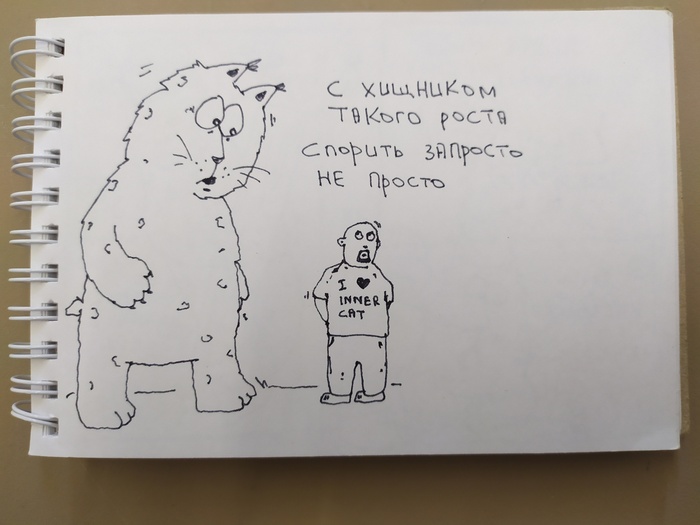 С ХИЩНИКОМ
ТАКОГО РОСТА
СПОРИТЬ ЗАПРОСТО
НЕ ПРОСТО
I ♥
INNER
CAT